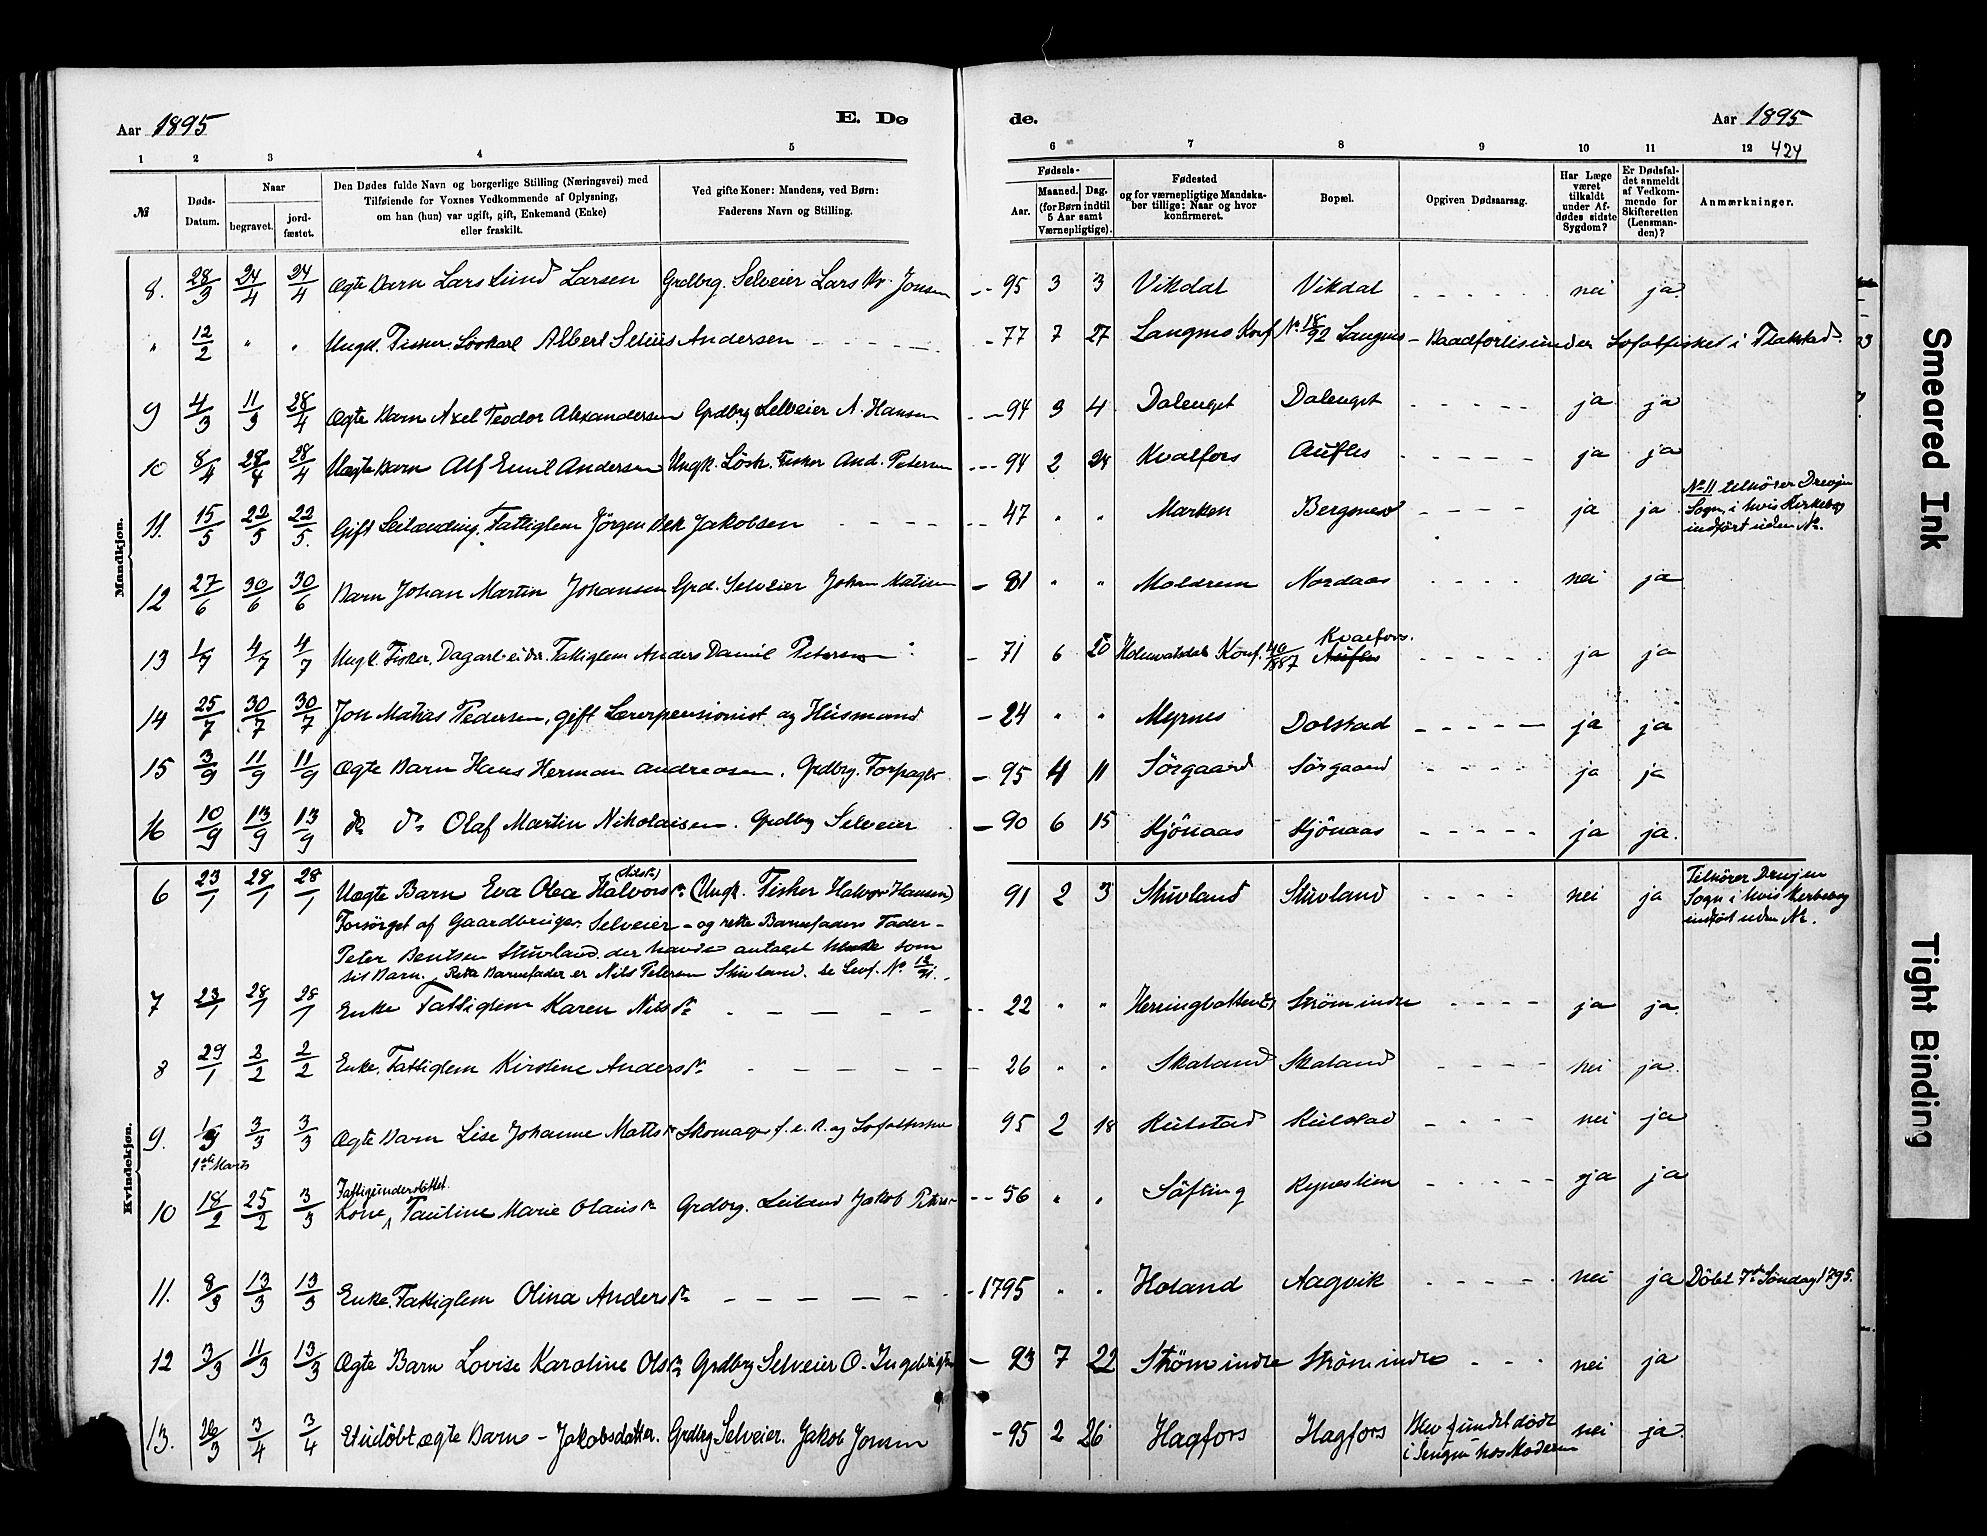 Aar 1895 E. Dø de. Aar 1895
1 2 3 4 5 6 7 8 9 10 11 12 424
№
Døds-Datum.
Naar
begravet.
jord-fæstet.
Den Dødes fulde Navn og borgerlige Stilling (Næringsvei) med
Tilføiende for Voxnes Vedkommende af Oplysning,
om han (hun) var ugift, gift, Enkemand (Enke)
eller fraskilt.
Ved gifte Koner: Mandens, ved Børn:
Faderens Navn og Stilling.
Fødsels-
Aar.
Maaned. Dag.
(for Børn indtil
5 Aar samt
Værnepligtige).
Fødested
og for værnepligtige Mandska-
ber tillige: Naar og hvor
konfirmeret.
Bopæl.
Opgiven Dødsaarsag.
Har Læge
været
tilkaldt
under Af-
dødes sidste
Sygdom?
Er Dødsfal-
det anmeldt
af Vedkom-
mende for
Skifteretten
(Lensman-
den)?
Anmærkninger.
Mandkjøn.
8. 28/3 24/4 24/4 Ægte Barn Lars Lund Larsen Grdbrg. Selveier Lars Kr. Jonsen 95 3 3 Vikdal Vikdal nei ja.
" 12/2 " " Ungk. Fisker Løskarl Albert Selius Andersen 77 7 27 Langnes Konf. No 18/92 Langnes Baadforlis under Lofotfisket i Flakstad.
9 4/3 11/3 28/4 Ægte Barn Axel Teodor Alexandersen Grdbrg Selveier A. Hansen 94 9 4 Dalenget Dalenget ja ja
10 8/4 28/4 28/4 Uægte Barn Alf Emil Andersen Ungk. Løsk. Fisker And. Petersen 94 2 24 Kvalfors Aufles ja ja
11. 15/5 22/5 22/5. Gift Leilænding, Fattiglem Jørgen Jakobsen 47 " " Marken Bergsnev ja ja
No 11 tilhører Drevjen
Sogn, i hvis Kirkebog
indført uden No.
12 27/6 30/6 30/6 Barn Johan Martin Johansen Grd. Selveier Johan Matisen 81 " " Moldrem Nordaas nei ja
13 1/7 4/7 4/7 Ungk. Fisker, Dagarbeider. Fattiglem Anders Daniel Petersen 71 6 20 Holmvatsdal Konf. 1887 Kvalfors. Aufles ja ja
14 25/7 30/7 30/7 Jon Matias Pedersen, gift Lærerpensionist og Husmand 24 " " Myrnes Dolstad ja ja
15 3/9 11/9 11/9 Ægte Barn Hans Herman Andreasen. Grdbrg. Forpagter 95 4 11 Sørgaard Sørgaard ja ja
16 10/9 13/9 13/9 do do Olaf Martin Nikolaisen. Grdbrg Selveier 90 6 15 Kjønaas Kjønaas ja ja.
Kvindekjøn.
6 23/1 28/1 28/1 Uægte Barn Eva Olea Halvorsdr (Nilsdr) (Ungk. Fisker Halvor Hansen) 91 2 3 Stuvland Stuvland nei ja
Forsørget af Gaardbruger Selveier - og rette Barnefaders Fader -
Peter Bentsen Stuvland der havde antaget som
sit Barn. Rette Barnefader er Nils Petersen Stuvland. se No 12/91.
Tilhører Drevjen
Sogn i hvis Kirkebog
indført uden No.
7 23/1 28/1 28/1 Enke Fattiglem Karen Nilsdr 22 " " Herringbotten Strøm indre ja ja.
8 29/1 2/2 2/2 Enke, Fattiglem Kirstine Andersdr 26 " " Skaland Skaland nei ja.
9. 1/3 3/3 3/3 Ægte Barn Lise Johanne Mattsdr Skomager f. e. R. og Lofotfisker 95 2 18 Kulstad Kulstad nei ja
1ste Marts
10 18/2 25/2 3/3 Kone, Fattigunderstøttet. Pauline Marie Olausdr Grdbrg. Leilænd Jakob Peters 56 " " Søfting Ryneslien ja ja
11. 8/3 13/3 13/3 Enke. Fattiglem Olina Andersdr 1795 " " Holand Aagvik nei ja Døbt 7de Søndag 1795.
12 3/3 11/3 13/3 Ægte Barn Lovise Karoline Olsdr Grdbrg Selveier O. Ingebrigtsen 93 7 22 Strøm indre Strøm indre nei ja
13. 26/3 3/4 3/4 Et udøbt ægte Barn - Jakobsdatter. Grdbrg Selveier. Jakob Jonsen 95 2 26 Hagfors Hagfors Blev fundet dødt nei ja.
i Sengen hos Moderen
Smeared Ink
Tight Binding